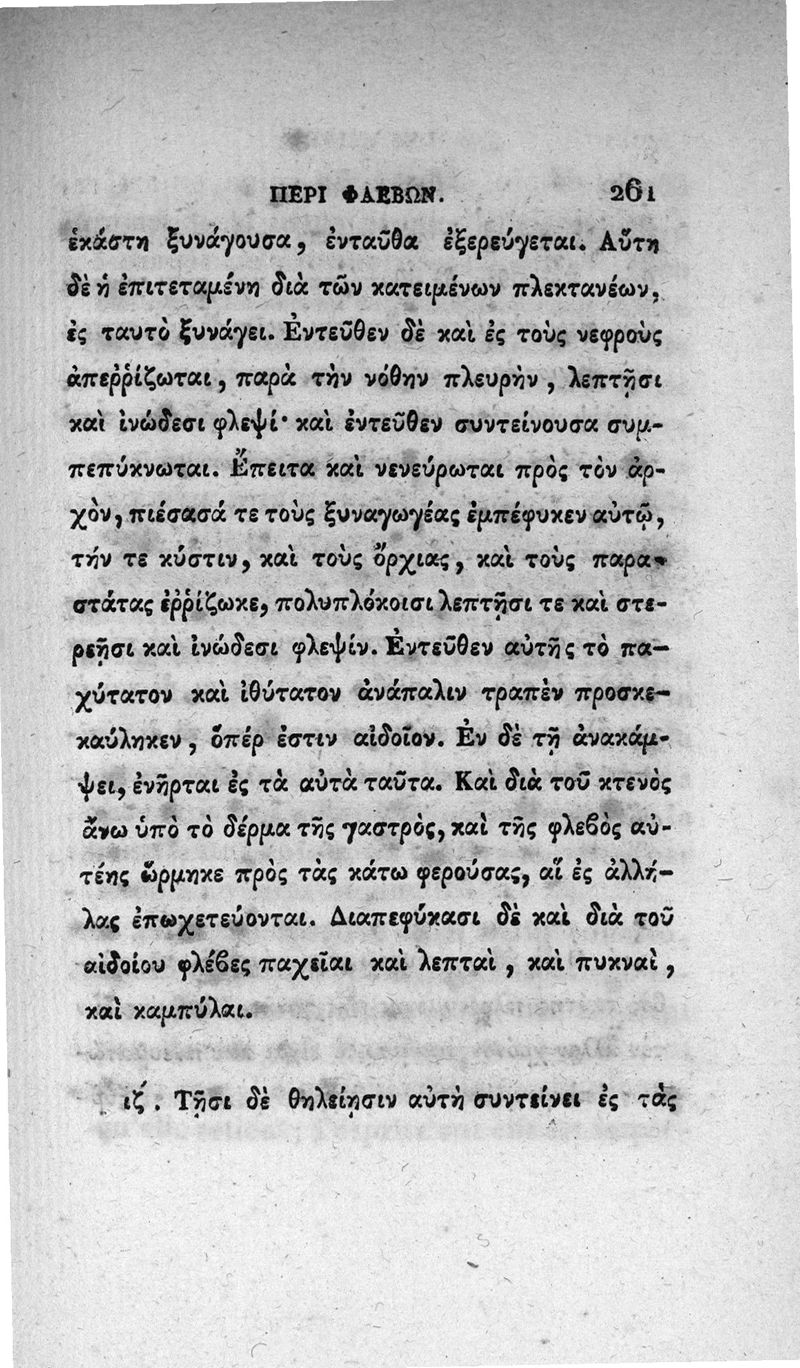 ΠΕΡΙ ΦΛΕΒΩΝ. 261
ἑκάστη ξυνάγουσα, ἐνταῦθα ἐξερεύγεται. Αὕτη
δὲ ἡ ἐπιτεταμένη διὰ τῶν κατειμένων πλεκτανέων,
ἐς ταυτὸ ξυνάγει. Ἐντεῦθεν δὲ καὶ ἐς τοὺς νεφροὺς
ἀπεῤῥίζωται, παρὰ τὴν νόθην πλευρὴν, λεπτῇσι
καὶ ἰνώδεσι φλεψί· καὶ ἐντεῦθεν συντείνουσα συμ-
πεπύκνωται. Ἔπειτα καὶ νενεύρωται πρὸς τὸν ἀρ-
χὸν, πιέσασά τε τοὺς ξυναγωγέας ἐμπέφυκεν αὐτῷ,
τήν τε κύστιν, καὶ τοὺς ὄρχιας, καὶ τοὺς παρα-
στάτας ἐῤῥίζωκε, πολυπλόκοισι λεπτῇσι τε καὶ στε-
ρεῇσι καὶ ἰνώδεσι φλεψίν. Ἐντεῦθεν αὐτῆς τὸ πα-
χύτατον καὶ ἰθύτατον ἀνάπαλιν τραπὲν προσκε-
καύληκεν, ὅπέρ ἐστιν αἰδοῖον. Ἐν δὲ τῇ ἀνακάμ-
ψει, ἐνῆρται ἐς τὰ αὐτὰ ταῦτα. Καὶ διὰ τοῦ κτενὸς
ἄνω ὑπὸ τὸ δέρμα τῆς γαστρὸς, καὶ τῆς φλεβὸς αὐ-
τέης ὥρμηκε πρὸς τὰς κάτω φερούσας, αἵ ἐς ἀλλή-
λας ἐπωχετεύονται. Διαπεφύκασι δὲ καὶ διὰ τοῦ
αἰδοίου φλέβες παχεῖαι καὶ λεπταὶ, καὶ πυκναὶ,
καὶ καμπύλαι.
ιζ΄. Τῇσι δὲ θηλείῃσιν αὐτὴ συντείνει ἐς τὰς